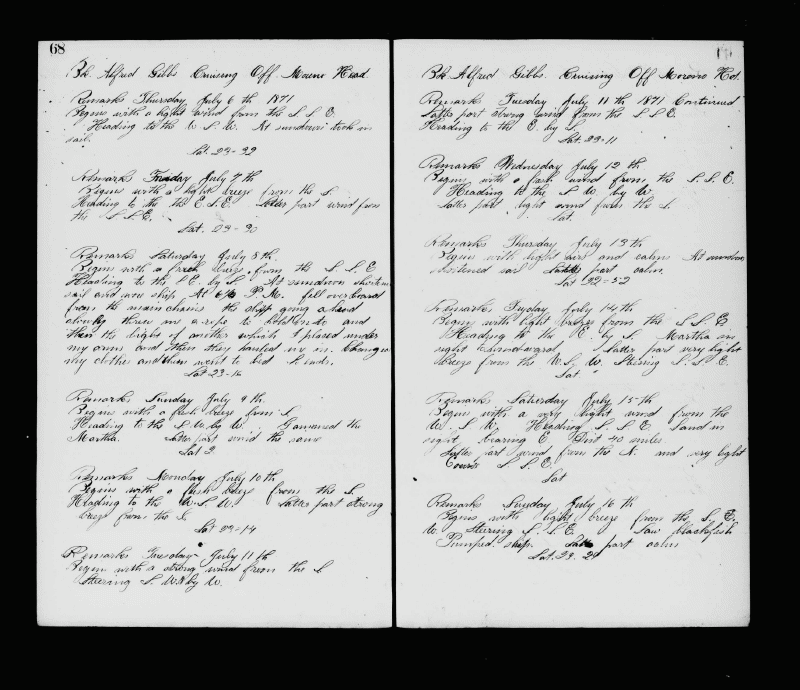 68
Bk. Alfred Gibbs. Cruising Off Moreno Head.
Remarks Thursday July 6 th 1871
Begins with a light wind from the S. S. E.
Heading to the W. S. W. At sundown took in
sail.
Lat. 23-32
Remarks Friday July 7 th
Begins with a light breeze from the S.
Heading to the the E. S. E. Latter part wind from
the S. S. E.
Lat. 23-30
Remarks Saturday July 8 th.
Begins with a fresh breeze from the S. S. E
Heading to the E. by S. At sundown shorten
sail and wore ship. At 6 P. M. fell overboard
from the main chains the ship going ahead
slowly threw me a rope to hold onto and
then the bight of another which I placed under
my arms and then they hauled me in. Changed
my clothes and then went to bed. So ends.
Lat 23-16
Remarks Sunday July 9 th
Begins with a fresh breeze from S.
Heading to the S. W. by W. Gammed the
Martha. Latter part wind the same
Lat 2
Remarks Monday July 10 th
Begins with a fresh breeze from the S.
Heading to the W. S. W. Latter part strong
breeze from the S.
Lat 23-14
Remarks Tuesday July 11 th
Begins with a strong wind from the S
Steering S. W. by W.
Bk Alfred Gibbs. Cruising Off Moreno Hd.
Remarks Tuesday July 11 th 1871 Continued
Latter part strong wind from the S S E.
Heading to the E. by S.
Lat. 23-11
Remarks Wednesday July 12 th
Begins with a fresh wind from the S. S. E.
Heading to the S W. by W.
Latter part light wind from the S.
Lat.
Remarks Thursday July 13 th
Begins with light airs and calms At sundown
shortened sail Latter part calm.
Lat 22-52
Remarks Fryday July 14 th
Begins with light breeze from the S. S. E.
Heading to the E. by S. Martha in
sight Latter part very light
breeze from the W. S. W. Steering S. S. E.
Lat
Remarks Saturday July 15 th
Begins with a very light wind from the
W. S. W. Heading S. S. E. Land in
sight bearing E Dist 40 miles.
Latter part wind from the N. and very light
Course S. S. E.
Lat
Remarks Sunday July 16 th
Begins with light breeze from the S. E.
W. Steering S. S. E. Saw blackfish
Pumped ship. Latter part calm
Lat. 23-2